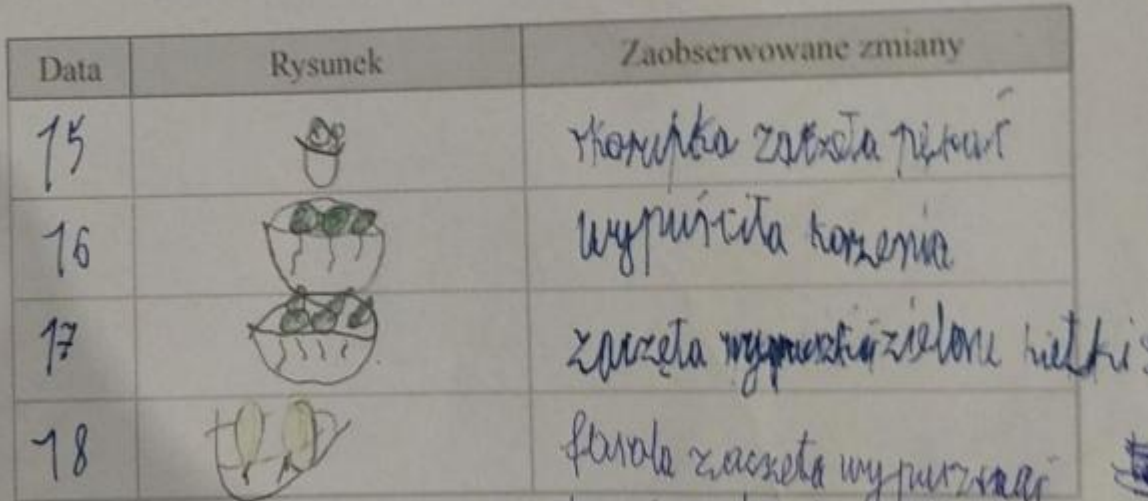 Data Rysunek Zaobserwowane zmiany
15 skorupka zaczeła pękać
16 wypuściła korzenia
17 zaczęła zielone kiełki
18 fasola zaczeła wypuszczać